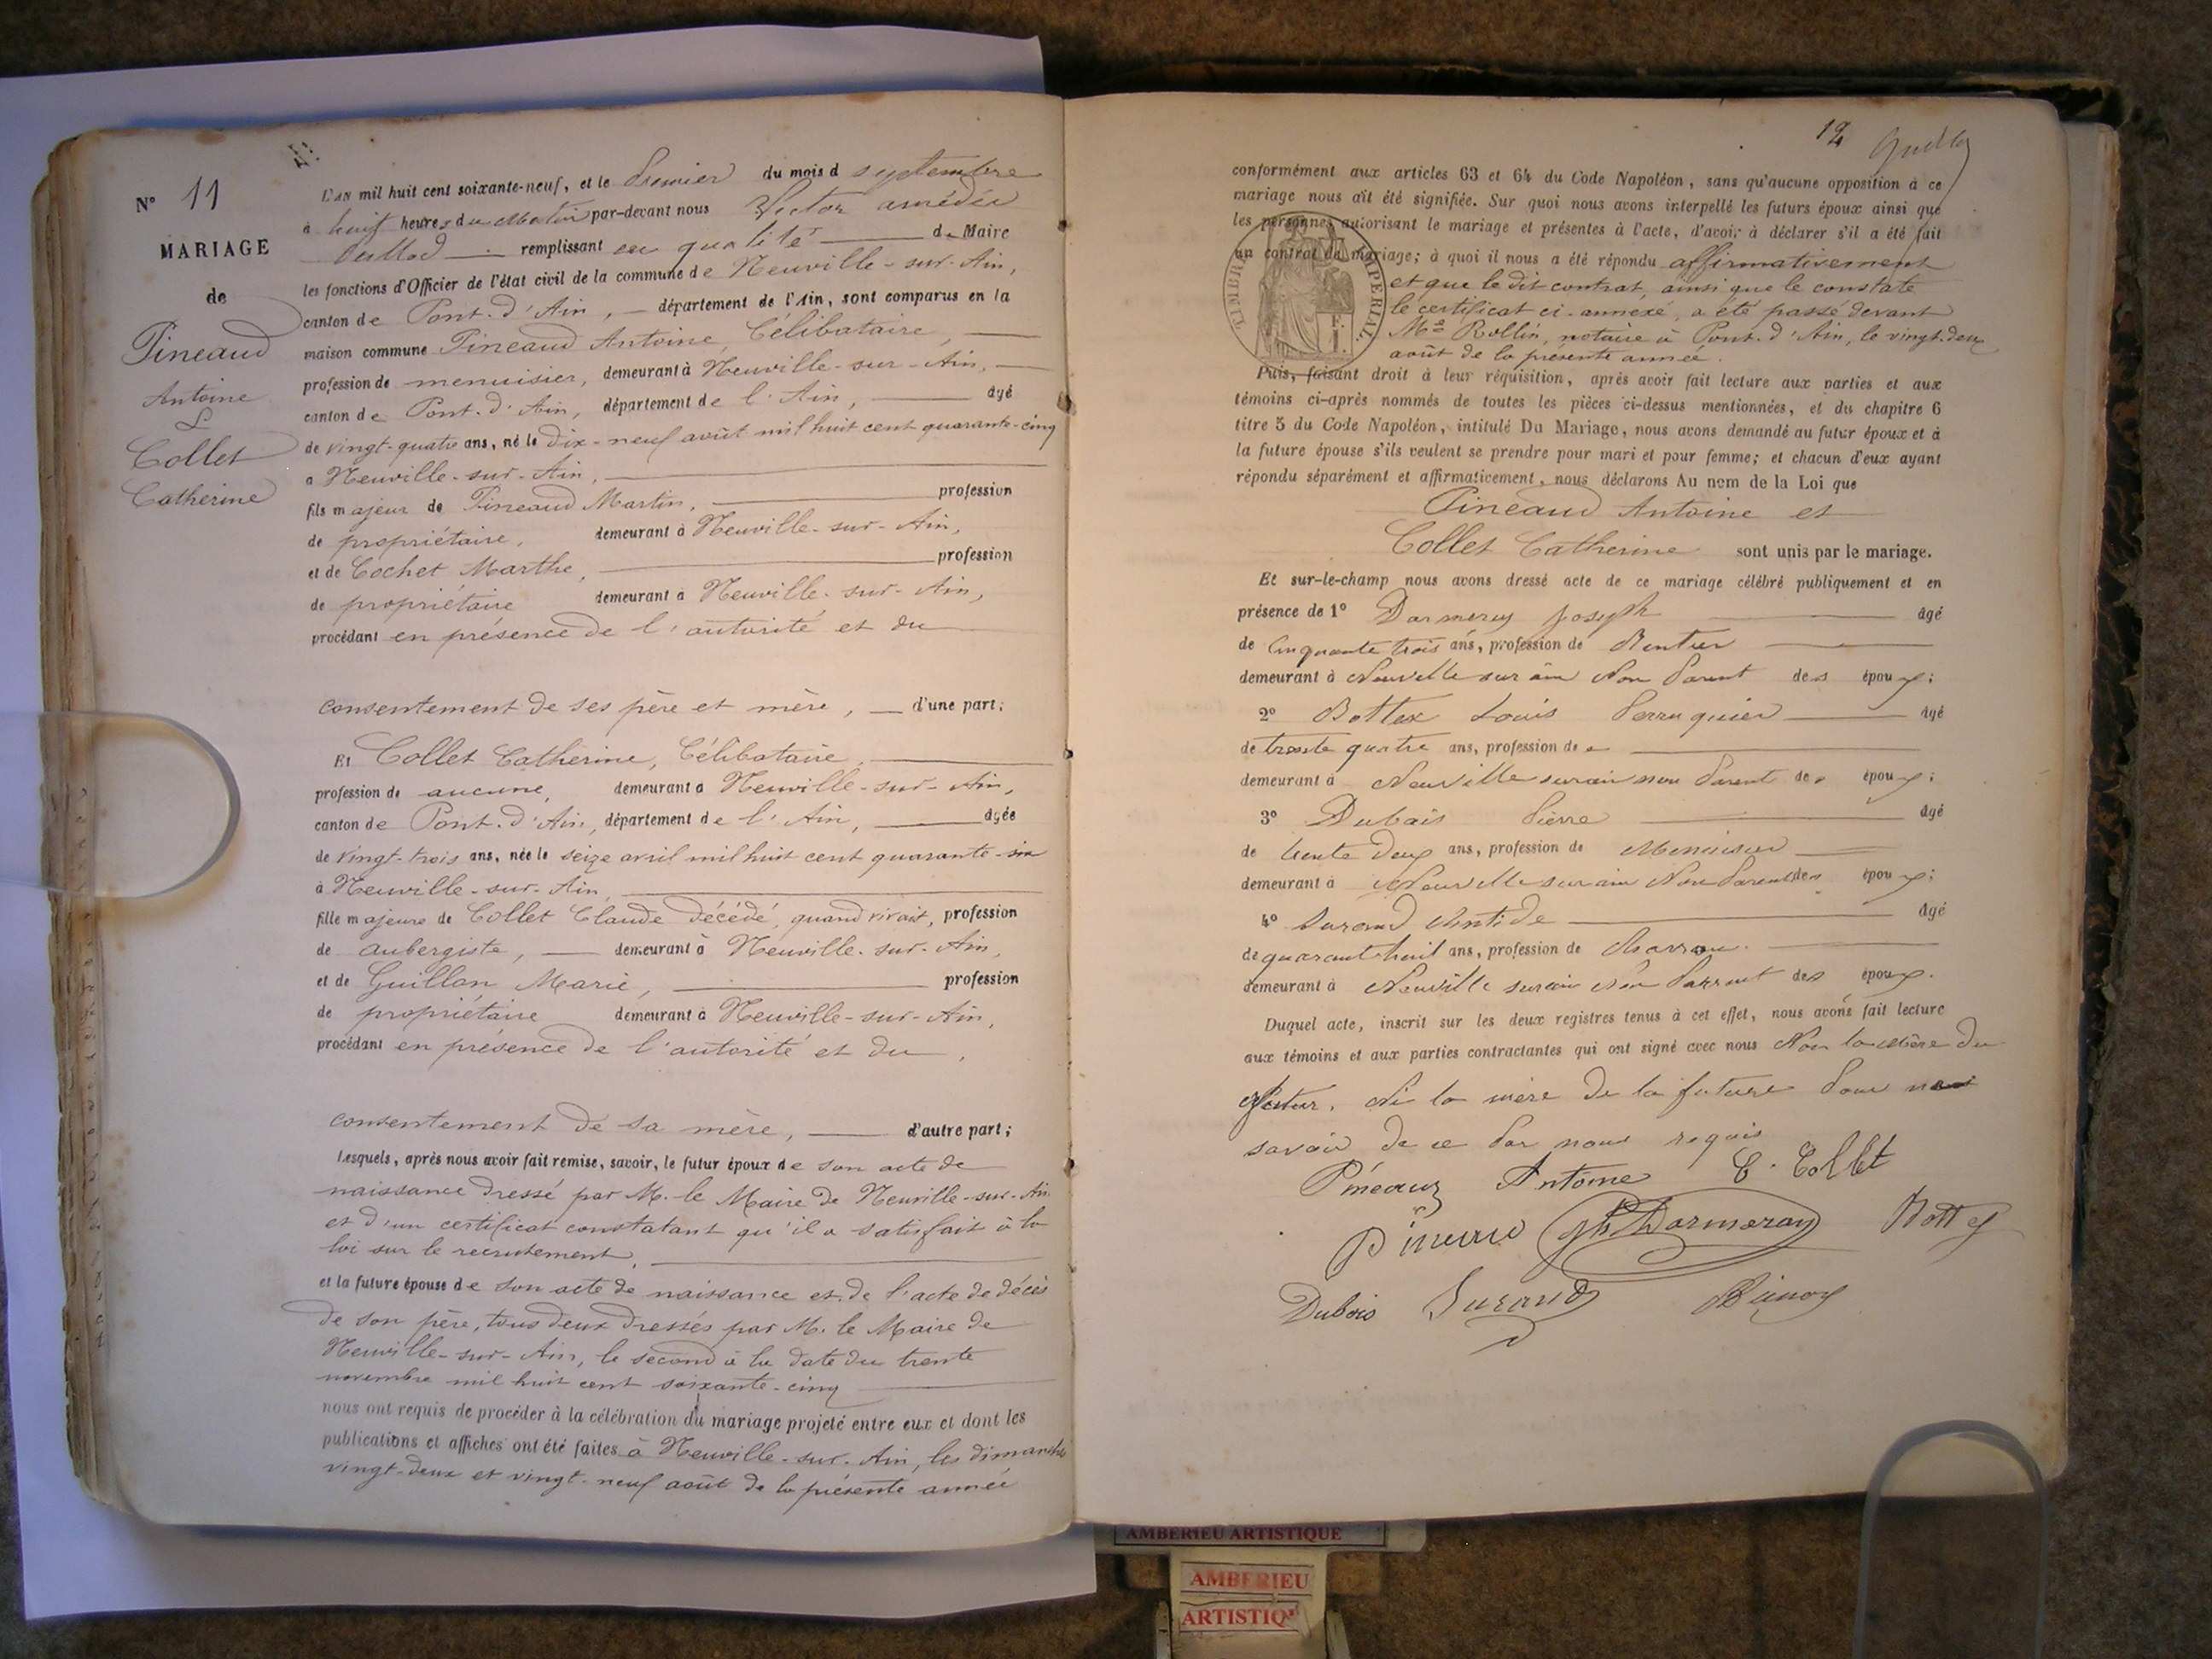 N° 11
MARIAGE
de
Pineaud
Antoine
&
Collet
Catherine
L'AN mil huit cent soixante-neuf, et le premier du mois d septembre
à huit heures du Matin par-devant nous Victor amédée
remplissant en qualité de Maire
les fonctions d'Officier de l'état civil de la commune de Neuville-sur-Ain,
canton de Pont-d'Ain, département de l'Ain, sont comparus en la
maison commune Pineaud Antoine, Célibataire,
profession de menuisier, demeurant à Neuville-sur-Ain,
canton de Pont-d'Ain, département de l'Ain, âgé
de vingt-quatre ans, né le dix-neuf août mil huit cent quarante-cinq
à Neuville-sur-Ain,
fils majeur de Pineaud Martin, profession
de propriétaire, demeurant à Neuville-sur-Ain,
et de Cochet Marthe, profession
de propriétaire demeurant à Neuville-sur-Ain,
procédant en présence de l'autorité et du
consentement de ses père et mère, d'une part;
Et Collet Catherine, Célibataire,
profession de aucune, demeurant à Neuville-sur-Ain,
canton de Pont-d'Ain, département de l'Ain, âgée
de vingt-trois ans, née le seize avril mil huit cent quarante-six
à Neuville-sur-Ain,
fille majeure de Collet Claude décédé, quand vivait, profession
de aubergiste, demeurant à Neuville-sur-Ain,
et de Guillon Marie, profession
de propriétaire demeurant à Neuville-sur-Ain,
procédant en présence de l'autorité et du
consentement de sa mère, d'autre part;
Lesquels, après nous avoir fait remise, savoir, le futur époux de son acte de
naissance dressé par M. le Maire de Neuville-sur-Ain
et d'un certificat constatant qu'il a satisfait à la
loi sur le recrutement,
et la future épouse de son acte de naissance et de l'acte de décès
de son père, tous deux dressés par M. le Maire de
Neuville-sur-Ain, le second à la date du trente
novembre mil huit cent soixante-cinq
nous ont requis de procéder à la célébration du mariage projeté entre eux et dont les
publications et affiches ont été faites à Neuville-sur-Ain, les dimanches
vingt-deux et vingt-neuf août de la présente année
12
conformément aux articles 63 et 64 du Code Napoléon, sans qu'aucune opposition à ce
mariage nous ait été signifiée. Sur quoi nous avons interpellé les futurs époux ainsi que
les personnes autorisant le mariage et présentes à l'acte, d'avoir à déclarer s'il a été fait
un contrat de mariage; à quoi il nous a été répondu affirmativement
et que le dit contrat, ainsi que le constate
le certificat ci-annexé, a été passé devant
Me Rollin, notaire à Pont-d'Ain, le vingt-deux
août de la présente année.
TIMBRE IMPERIAL
Puis, faisant droit à leur réquisition, après avoir fait lecture aux parties et aux
témoins ci-après nommés de toutes les pièces ci-dessus mentionnées, et du chapitre 6
titre 5 du Code Napoléon, intitulé Du Mariage, nous avons demandé au futur époux et à
la future épouse s'ils veulent se prendre pour mari et pour femme; et chacun d'eux ayant
répondu séparément et affirmativement, nous déclarons Au nom de la Loi que
Pineaud Antoine et
Collet Catherine sont unis par le mariage.
Et sur-le-champ nous avons dressé acte de ce mariage célébré publiquement et en
présence de 1° Darmeray Joseph âgé
de Cinquante trois ans, profession de Rentier
demeurant à Neuville sur ain Non Parent des époux;
2° Bottex Louis Perruquier âgé
de trente quatre ans, profession de
demeurant à Neuville sur ain non Parent des époux;
3° Dubois Pierre âgé
de trente deux ans, profession de Menuisier
demeurant à Neuville sur ain Non Parent des époux;
4° Durand Antide âgé
de quarante huit ans, profession de Charron
demeurant à Neuville sur ain Non Parrent des époux.
Duquel acte, inscrit sur les deux registres tenus à cet effet, nous avons fait lecture
aux témoins et aux parties contractantes qui ont signé avec nous Non la Mère du
futur, Ni la mère de la future Pour ne
savoir de ce Par nous requis
Pineaux Antoine C. Collet
Pineaud Jph Darmeray Bottex
Dubois Durand
AMBERIEU ARTISTIQUE
AMBERIEU
ARTISTIQ